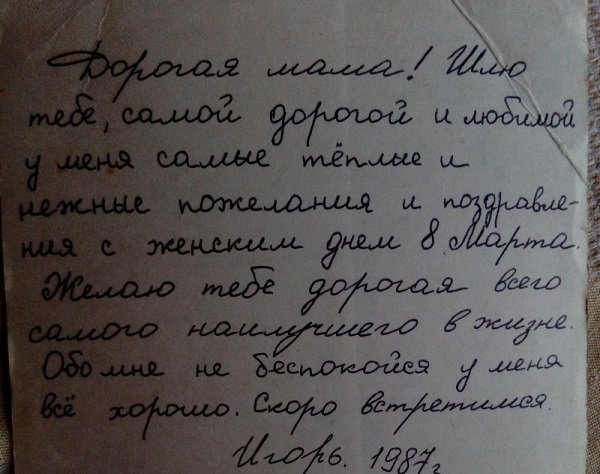 Дорогая мама! Шлю
тебе, самой дорогой и любимой
у меня самые тёплые и
нежные пожелания и поздравле-
ния с женским днем 8 Марта.
Желаю тебе дорогая всего
самого наилучшего в жизне.
Обо мне не беспокойся у меня
всё хорошо. Скоро встретимся.
Игорь. 1987г